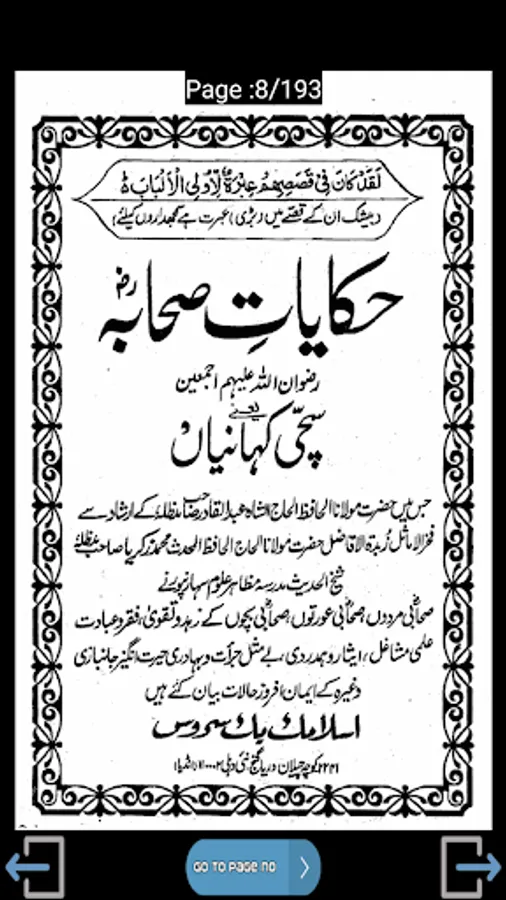 Page :8/193
لَقَدْ كَانَ فِیْ قَصَصِهِمْ عِبْرَةٌ لِّاُولِی الْاَلْبَابِ ط
(بیشک ان کے قصے میں (بڑی) عبرت ہے سمجھداروں کیلئے)
حکایاتِ صحابہ رض
رضوان اللہ علیہم اجمعین
یعنے
سچّی کہانیاں
جس میں حضرت مولانا الحافظ الحاج الشاہ عبدالقادر صاحب مدظلہٗ کے ارشاد سے
فخر الاماثل زبدۃ الافاضل حضرت مولانا الحاج الحافظ المحدث محمد زکریا صاحب مدظلہٗ
شیخ الحدیث مدرسہ مظاہر علوم سہارنپور نے
صحابی مردوں، صحابی عورتوں، صحابی بچوں کے زہد و تقویٰ، فقر و عبادت
علمی مشاغل، ایثار و ہمدردی، بے مثل جرأت و بہادری حیرت انگیز جانبازی
وغیرہ کے ایمان افروز حالات بیان کئے ہیں
اسلامک بک سروس
۲۲۴۱ کوچہ چیلان دریا گنج نئی دہلی ۱۱۰۰۰۲ (انڈیا)
GO TO Page NO